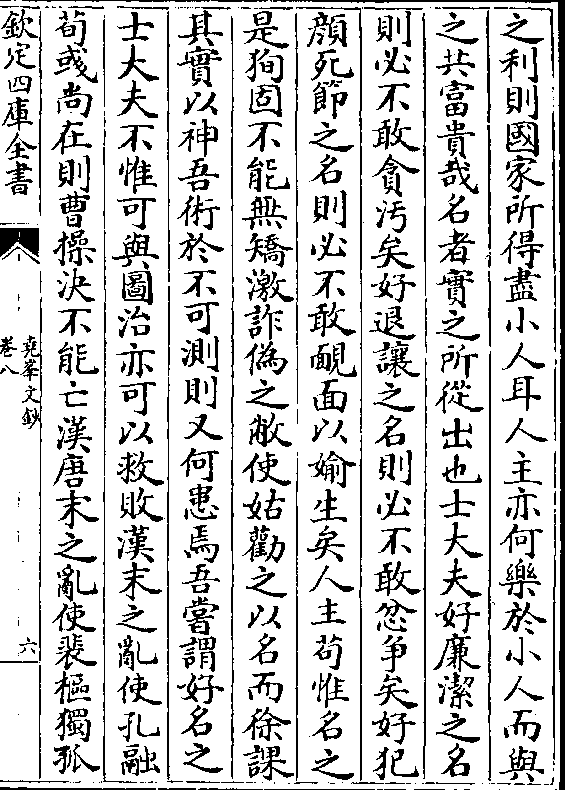 之利則國家所得盡小人耳人主亦何樂於小人而與
之共富貴哉名者實之所從出也士大夫好廉潔之名
則必不敢貪汚矣好退讓之名則必不敢忿争矣好犯
顔死節之名則必不敢靦面以婾生矣人主苟惟名之
是狥固不能無矯激詐偽之敝使姑勸之以名而徐課
其實以神吾術於不可測則又何患焉吾嘗謂好名之
士大夫不惟可與圖治亦可以救敗漢末之亂使孔融
荀彧尚在則曹操決不能亡漢唐末之亂使裴樞獨孤
欽定四庫全書
堯峯文鈔
卷八
六